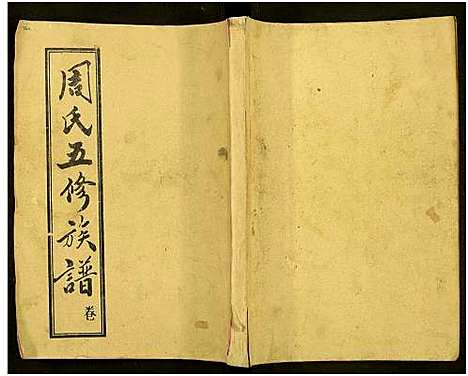 周氏五修族譜 卷